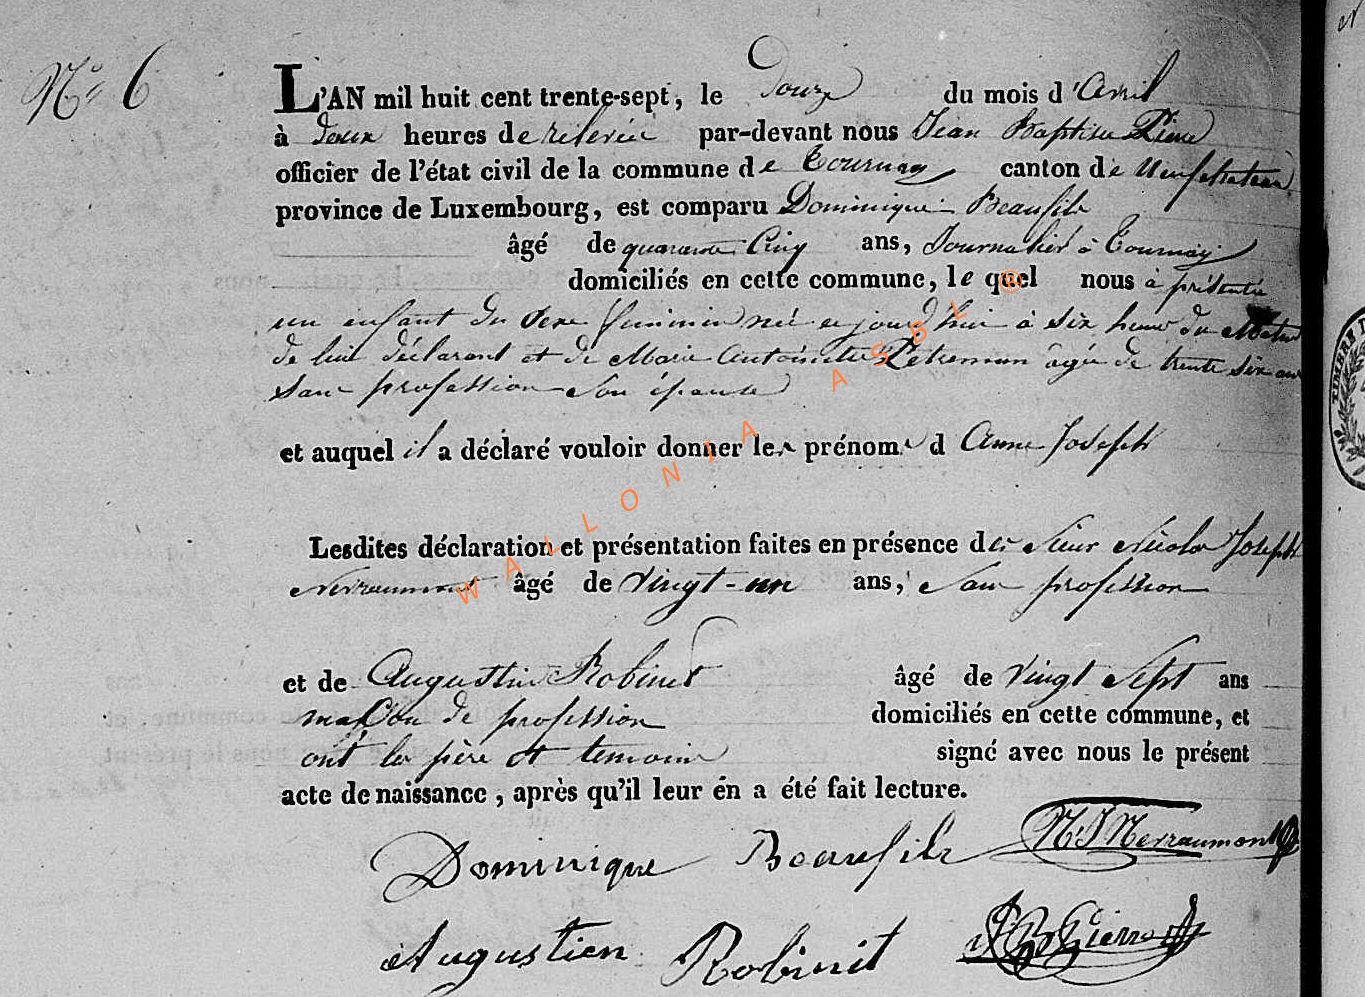 N° 6
L'AN mil huit cent trente-sept, le douze du mois d'Avril
à deux heures de relevée par-devant nous Jean Baptiste Pierre
officier de l'état civil de la commune de Tournay canton de Neufchateau
province de Luxembourg, est comparu Dominique Beaufils
âgé de quarante Cinq ans, Journalier à Tournay
domiciliés en cette commune, le quel nous à présenté
un enfant du sexe feminin née ce jourd'hui à six heures du Matin
de lui déclarant et de Marie Antoinette Petremon âgée de trente six ans
sans profession son épouse
et auquel il a déclaré vouloir donner les prénoms d Anne Joseph
Lesdites déclaration et présentation faites en présence des Sieur Nicolas Joseph
Nerraumont âgé de vingt-un ans, sans profession
et de Augustin Robinet âgé de vingt sept ans
maçon de profession domiciliés en cette commune, et
ont les père et temoins signé avec nous le présent
acte de naissance, après qu'il leur en a été fait lecture.
Dominique Beaufils N J Nerraumont
Augustien Robinet J B Pierre
WALLONIA ASBL ©
TIMBRE